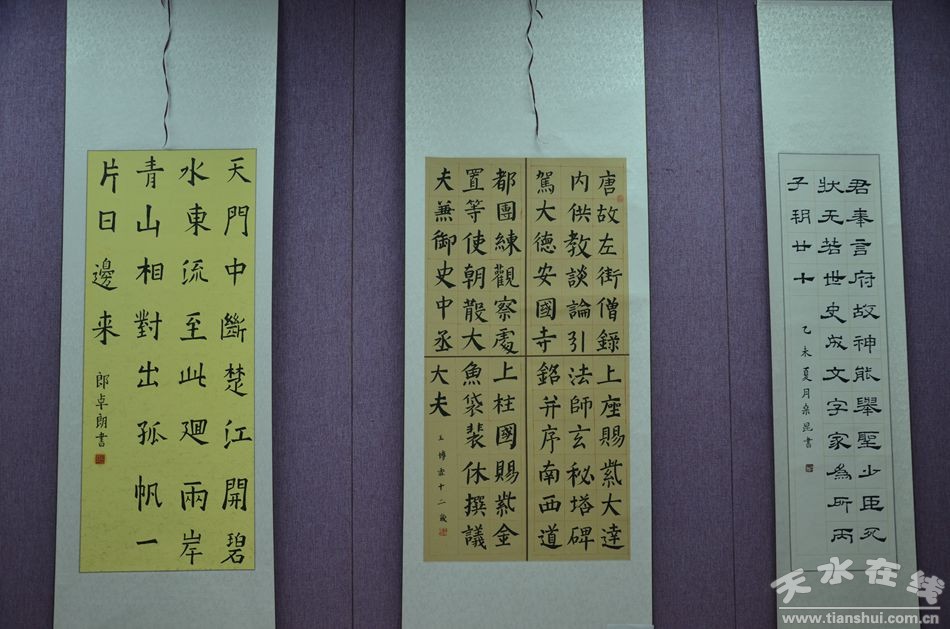 天門中斷楚江開碧
水東流至此廻兩岸
青山相對出孤帆一
片日邊来
郎卓朗書
唐故左街僧錄上座賜紫大達
内供教談論引法師玄秘塔碑
駕大德安國寺銘并序南西道
都團練觀察處上柱國賜紫金
置等使朝散大魚袋裴休撰議
夫兼御史中丞大夫
王博 十二歲
君奉言府故神能舉聖少臣死
狀无若世史成文字家為所丙
子 廿十
乙未夏月 書
天水在线
www.tianshui.com.cn